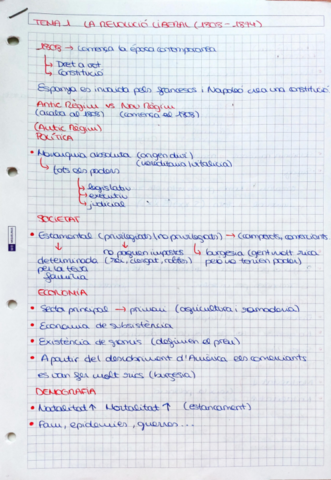 TEMA 1 LA REVOLUCIÓ LIBERAL (1808-1874)
1808 → Comença la època contemporània
↳ Dret a vot
↳ Constitució
Espanya es invaida pels francesos i Napoleó crea una constitució
Antic Règim vs Nou Règim
(acaba al 1808) (comença el 1808)
(Antic Règim)
POLÍTICA
• Monarquia absoluta (origen diví)
(hereditària i vitalícia)
↳ tots els poders
↳ legislatiu
↳ executiu
↳ judicial
SOCIETAT
• Estamental (privilegiats / no privilegiats) → (camperols, comerciants
determinada per la teva família
no paguen impostos (rei, clergat, nobles)
↳ burgesia (gent molt rica però no tenien poder)
ECONOMIA
• Sector principal → primari (agricultura i ramaderia)
• Economia de subsistència
• Existència de gremis (defineixen el preu)
• A partir del descobriment d'Amèrica els comerciants
es van fer molt rics (burgesia)
DEMOGRAFIA
• Natalitat ↑ Mortalitat ↑ (estancament)
• Fam, epidemies, guerres...